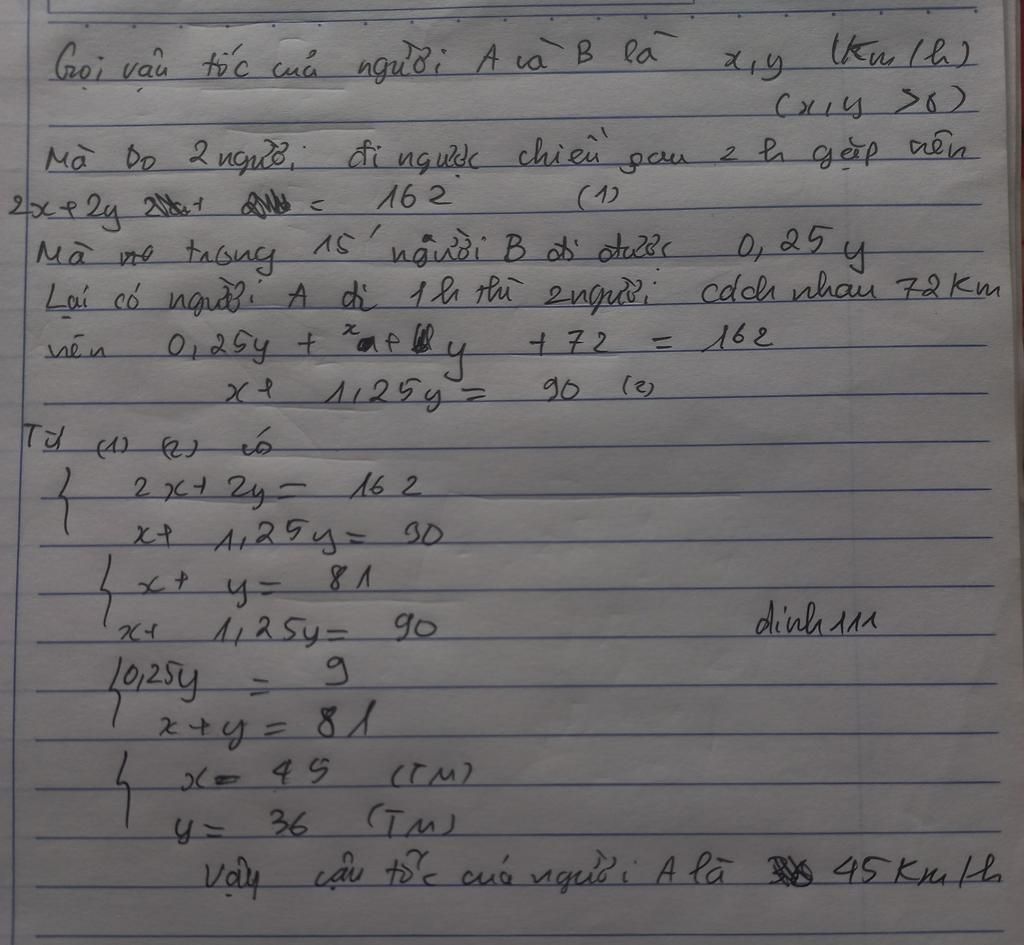 Gọi vận tốc của người A và B là x, y (Km/h)
(x, y > 0)
Mà Do 2 người đi ngược chiều sau 2 h gặp nên
2x + 2y = 162 (1)
Mà trong 15' người B đi được 0,25y
Lại có người A đi 1h thì 2 người cách nhau 72 Km
nên 0,25y + x + y + 72 = 162
x + 1,25y = 90 (2)
Từ (1) (2) có
{ 2x + 2y = 162
x + 1,25y = 90
{ x + y = 81
x + 1,25y = 90
dinh111
{ 0,25y = 9
x + y = 81
{ x = 45 (TM)
y = 36 (TM)
Vậy vận tốc của người A là 45 Km/h